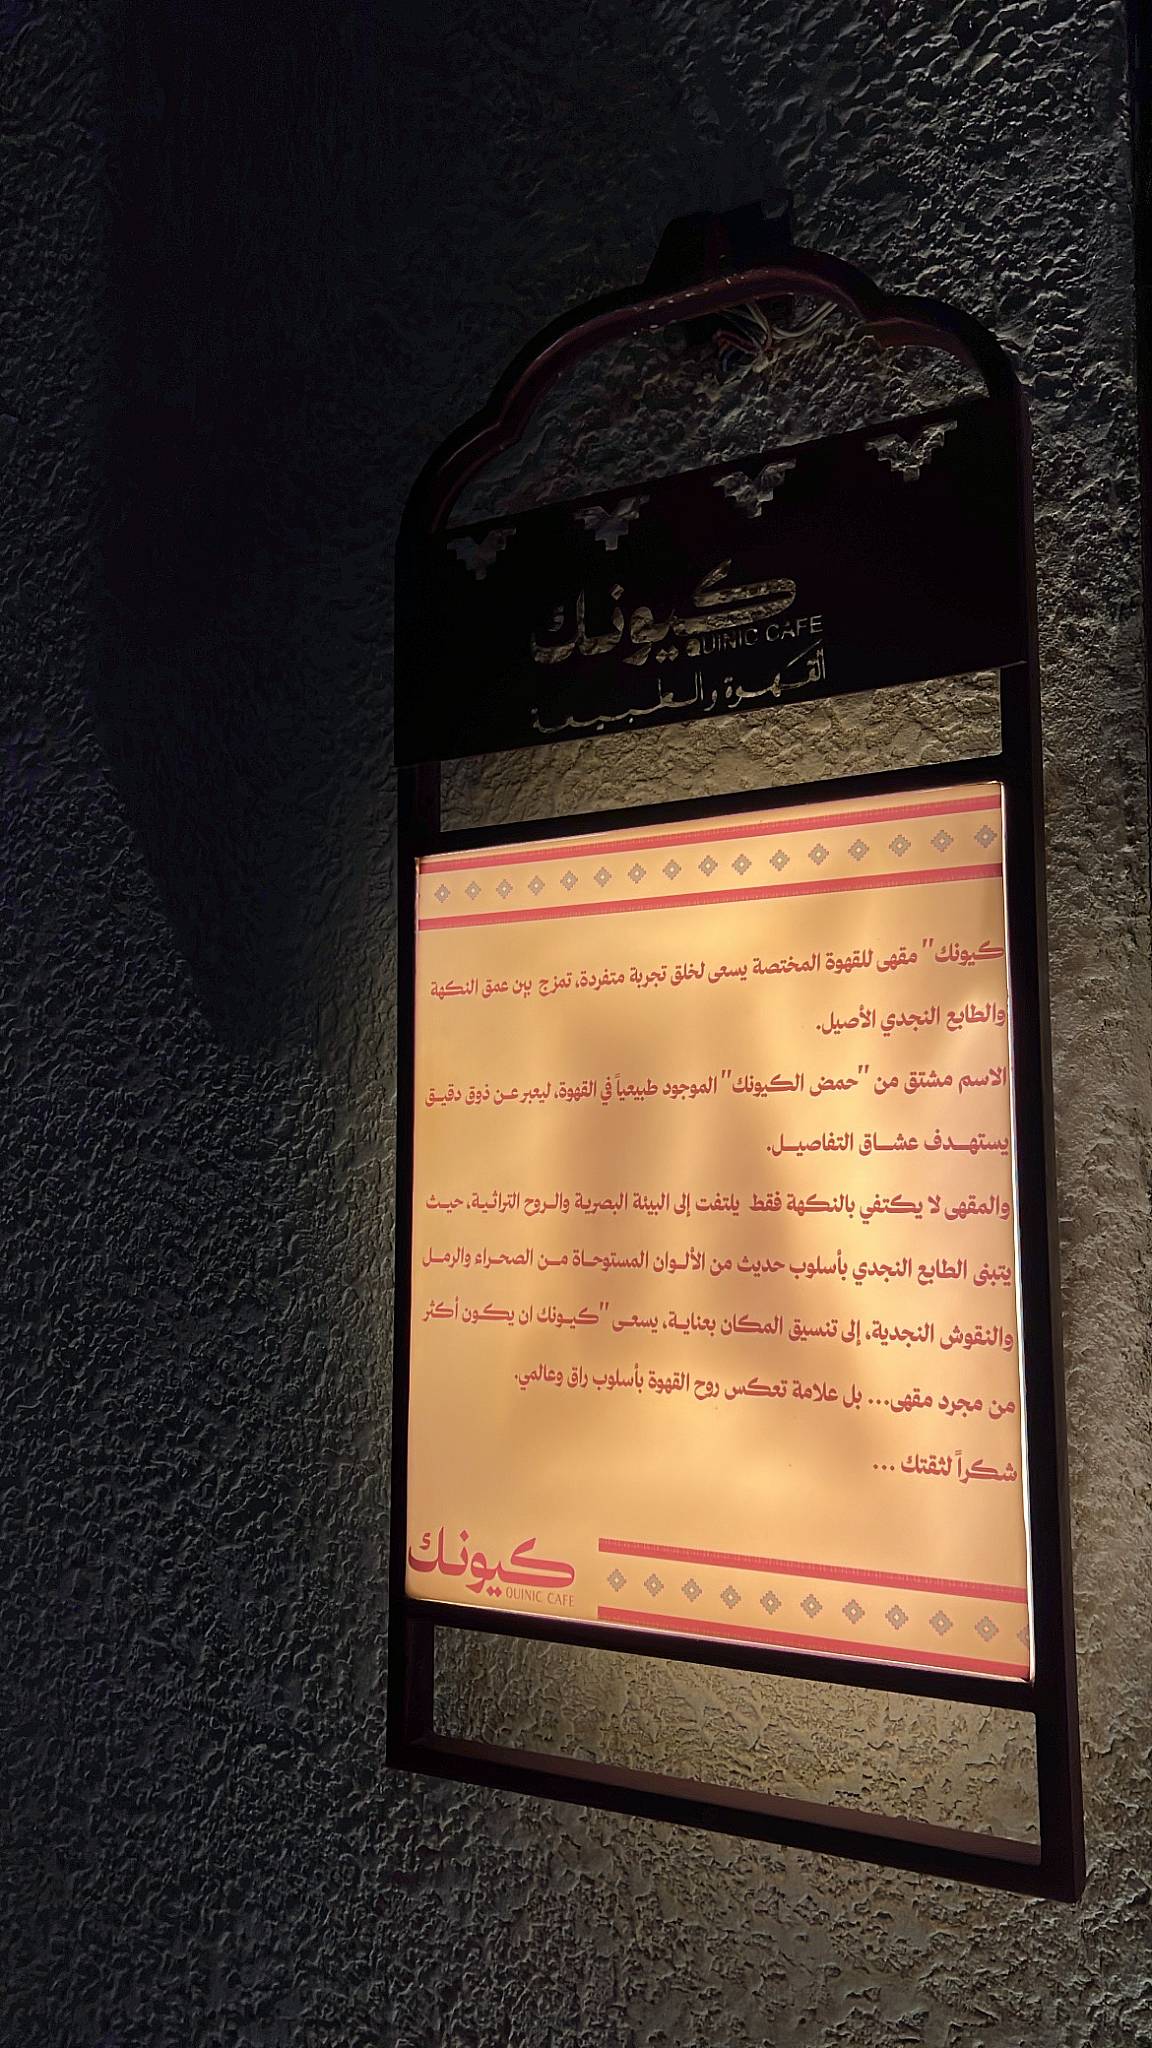 كيونك
QUINIC CAFE
القهوة والطبيعة
كيونك" مقهى للقهوة المختصة يسعى لخلق تجربة متفردة، تمزج بين عمق النكهة
والطابع النجدي الأصيل.
الاسم مشتق من "حمض الكيونك" الموجود طبيعياً في القهوة، ليعبر عن ذوق دقيق
يستهدف عشاق التفاصيل.
والمقهى لا يكتفي بالنكهة فقط يلتفت إلى البيئة البصرية والروح التراثية، حيث
يتبنى الطابع النجدي بأسلوب حديث من الألوان المستوحاة من الصحراء والرمل
والنقوش النجدية، إلى تنسيق المكان بعناية، يسعى "كيونك ان يكون أكثر
من مجرد مقهى... بل علامة تعكس روح القهوة بأسلوب راق وعالمي.
شكراً لثقتك ...
كيونك
QUINIC CAFE